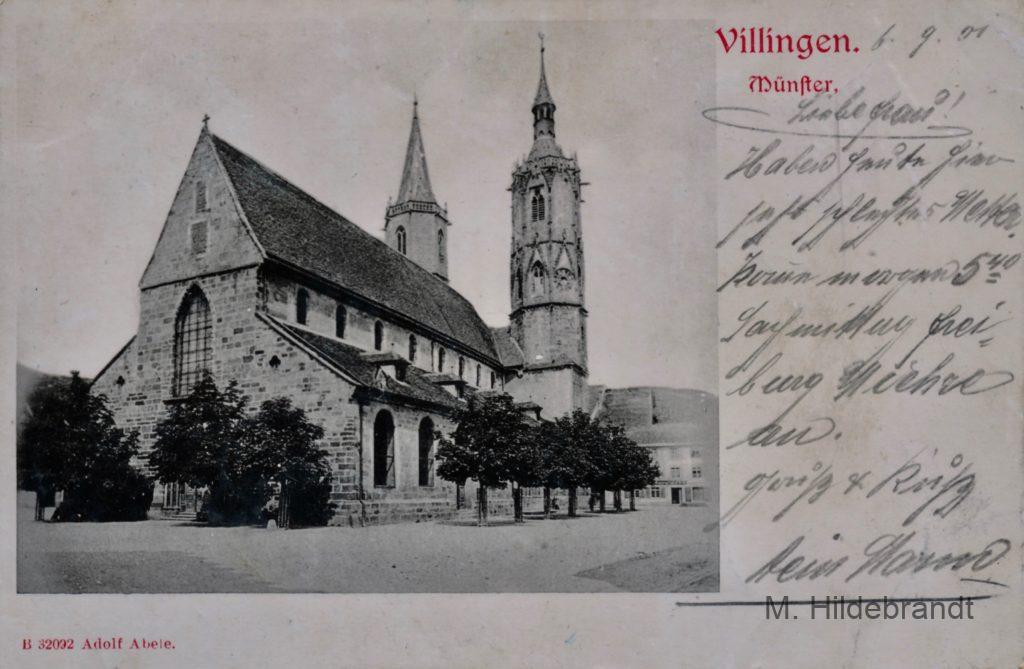 Villingen. 6. 9. 01
Münster.
Liebe Frau!
Haben heute hier
sehr schlechtes Wetter.
Komme morgen 5⁴⁰
Nachmittag Frei-
burg Wiehre
an.
Gruß & Kuß
Dein Mann
M. Hildebrandt
B 32092 Adolf Abele.